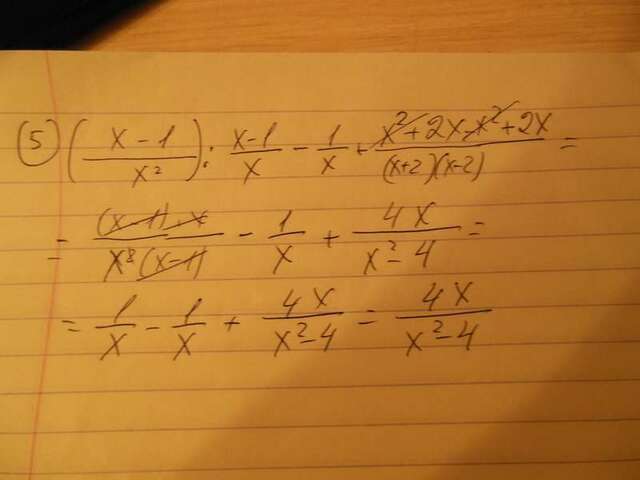 (5) ( (x-1)/x² ) : (x-1)/x - 1/x + (x²+2x-x²+2x)/((x+2)(x-2)) =
= ((x-1)·x)/(x²(x-1)) - 1/x + 4x/(x²-4) =
= 1/x - 1/x + 4x/(x²-4) = 4x/(x²-4)